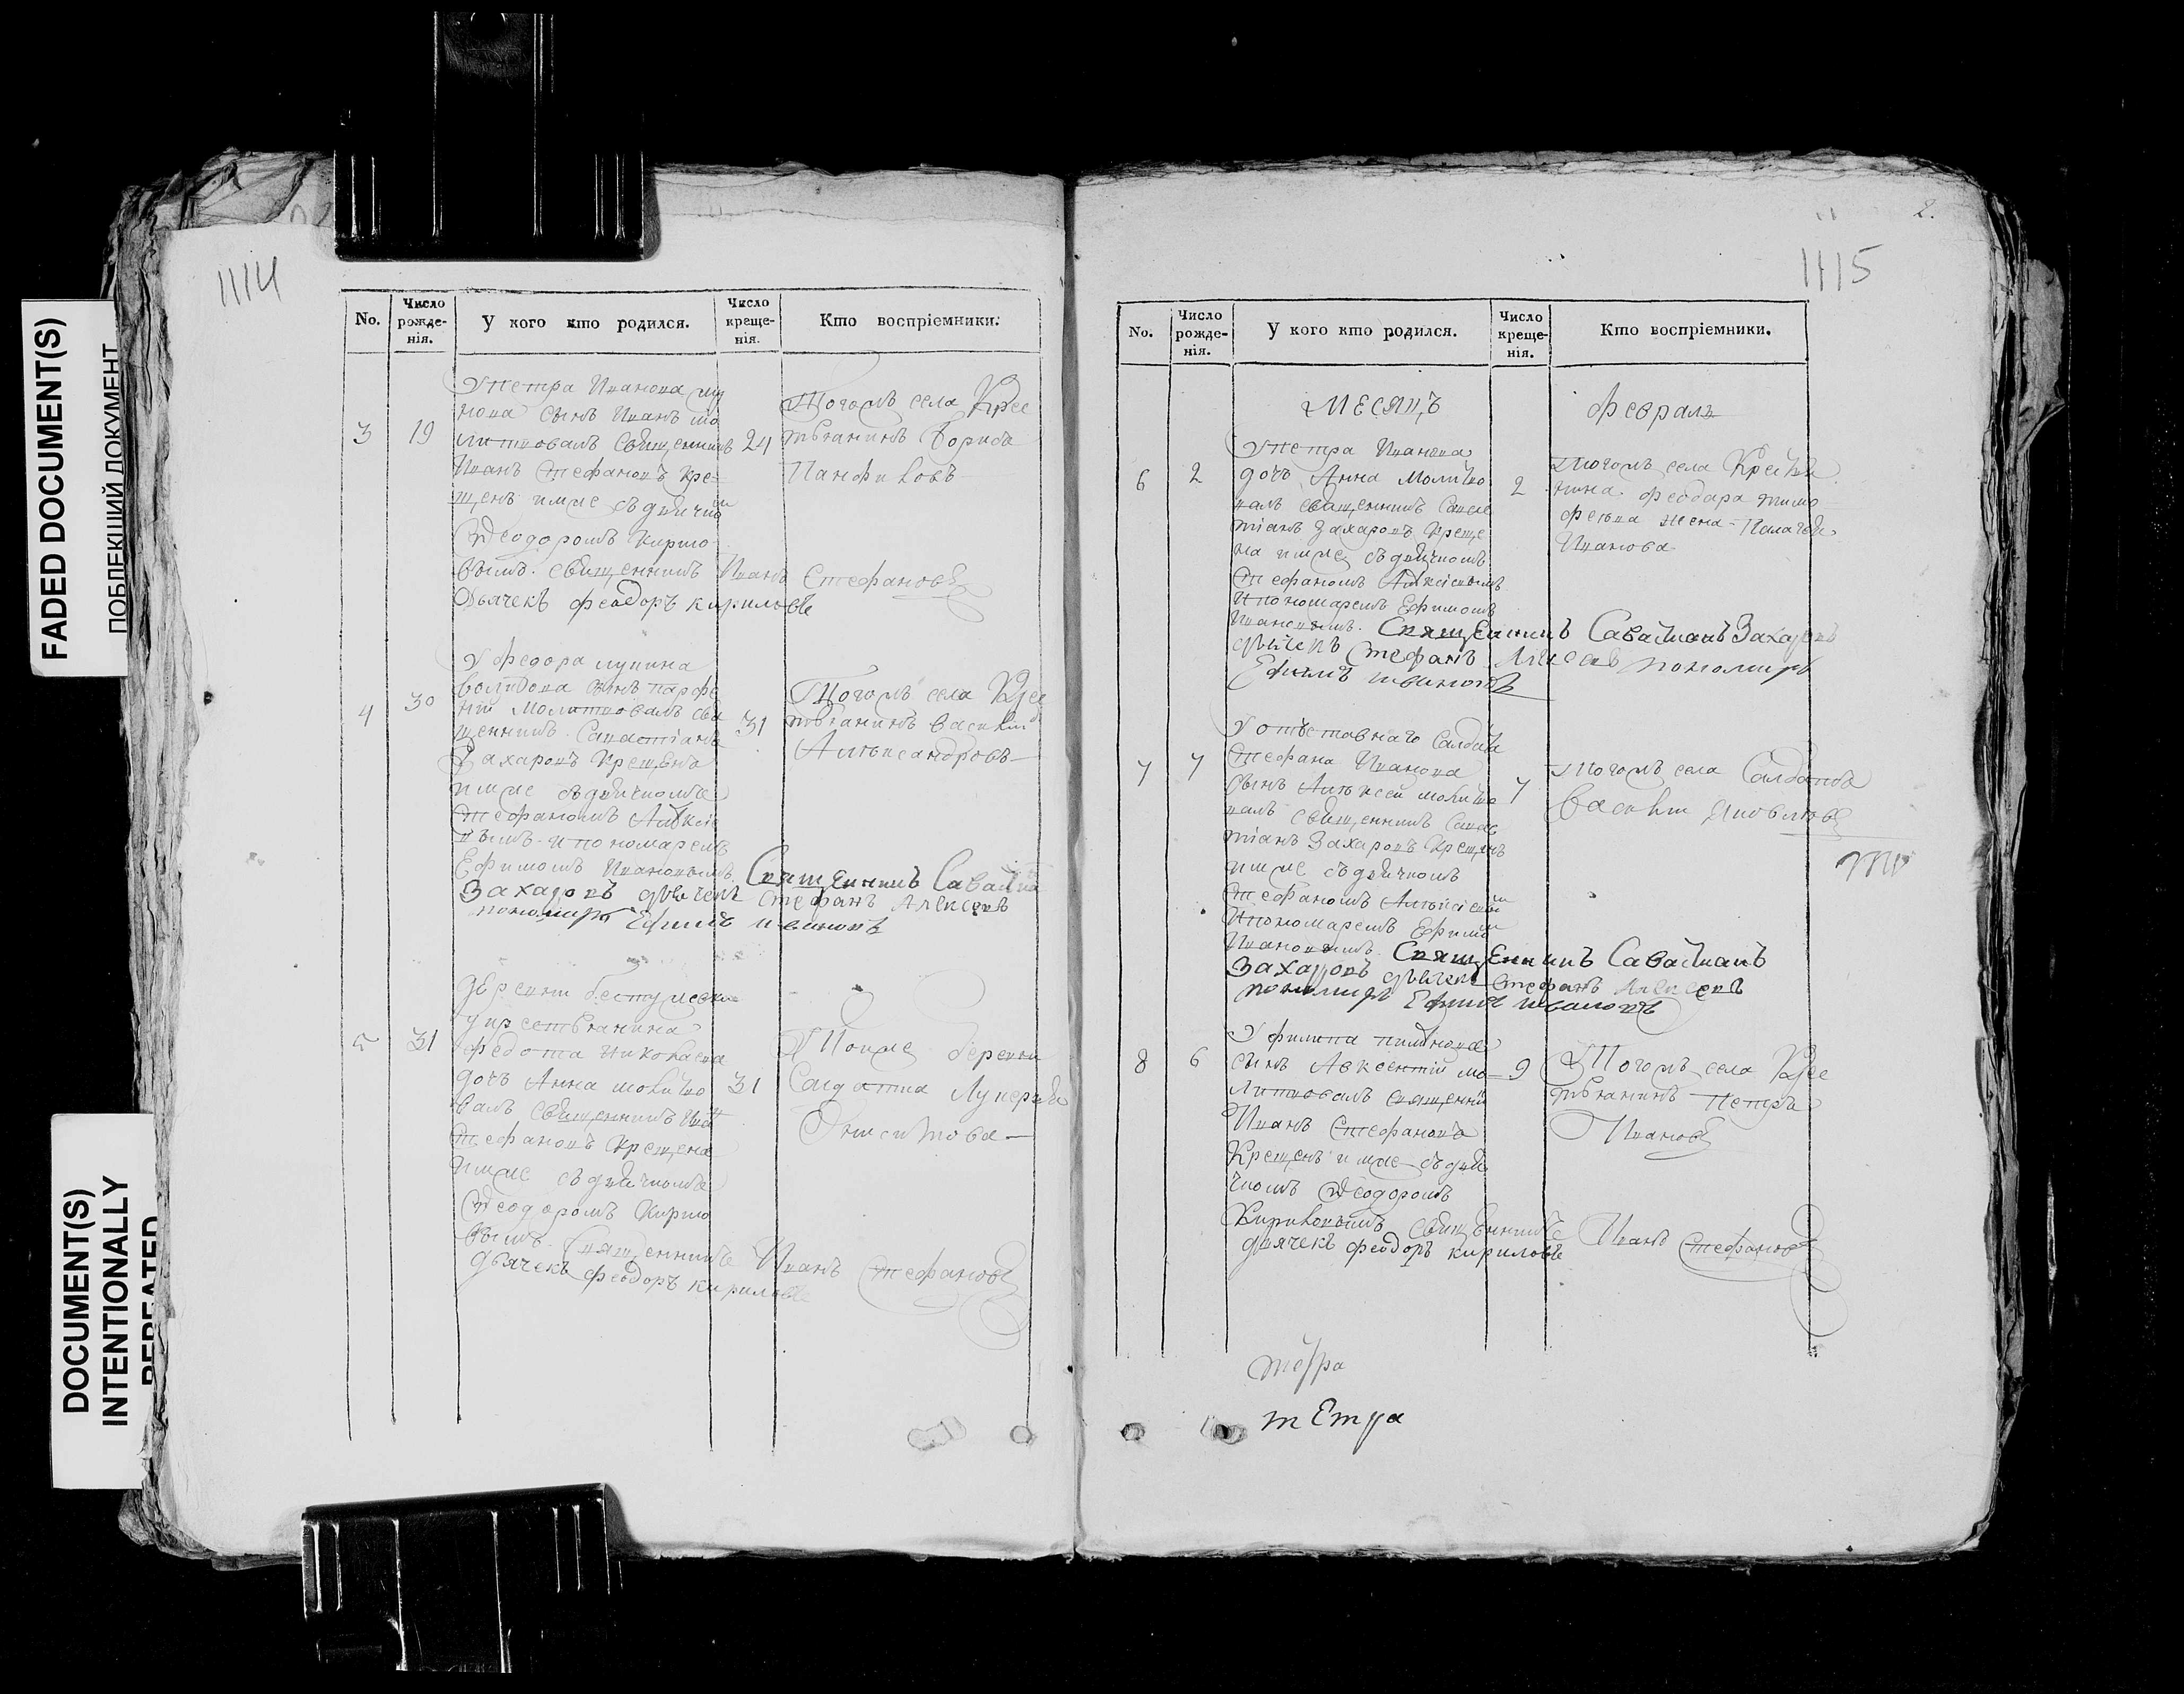 FADED DOCUMENT(S)
ПОБЛЕКШИЙ ДОКУМЕНТ
DOCUMENT(S)
INTENTIONALLY
REPEATED
1114
No.
Число рожденія.
У кого кто родился.
Число крещенія.
Кто воспріемники.
У петра Иванова
нова сынъ Иванъ мо
3 19 литвовалъ священникъ 24
Иванъ Стефановъ кре
щенъ имже съ дьячко
Феодоромъ Кирило
вымъ. священникъ Иванъ Стефановъ
Дьячекъ феодоръ кириловъ
Тогожъ села Крес
тьянинъ Борисъ
Панфиловъ
У федора лупина
сынъ парфе
4 30 ній молитвовалъ свя 31
щенникъ Савастіанъ
Захаровъ Крещенъ
имже съ дьячкомъ
Стефаномъ Алексіе
вымъ и пономаремъ
Ефимомъ Ивановымъ. Священникъ Савастиа
Захаровъ дьячекъ Стефанъ Алексеевъ
пономарь Ефимъ ивановъ
Тогожъ села Крес
тьянинъ василий
Александровъ
Деревни бестужевки
у крестьянина
5 31 федота николаева
дочь Анна молитво 31
валъ священникъ Ива
Стефановъ Крещена
имже съ дьячкомъ
Феодоромъ Кирило
вымъ Священникъ Иванъ Стефановъ
дьячекъ феодоръ кириловъ
Тойже деревни
Солдатка Лукерья
Анисимова
2.
1115
No.
Число рожденія.
У кого кто родился.
Число крещенія.
Кто воспріемники.
МЕСЯЦЪ февраль
У петра Иванова
6 2 дочь Анна молитво 2
валъ священникъ Савас
тіанъ Захаровъ Креще
на имже съ дьячкомъ
Стефаномъ Алексіевымъ
И пономаремъ Ефимомъ
Ивановымъ. Священникъ Савастианъ Захаровъ
дьячекъ Стефанъ Алексеевъ пономарь
Ефимъ ивановъ
Тогожъ села Крестья
нина феодара тимо
феева жена Палагея
Иванова
У отставнаго Салдата
7 7 Стефана Иванова
сынъ Алексей молитво 7
валъ священникъ Савас
тіанъ Захаровъ Крещенъ
имже съ дьячкомъ
Стефаномъ Алексіевы
И пономаремъ Ефимо
Ивановымъ. Священникъ Савастианъ
Захаровъ дьячекъ Стефанъ Алексеевъ
пономарь Ефимъ ивановъ
Тогожъ села Салдатъ
василий Яковлевъ
У филипа
8 6 сынъ Авксентій мо 9
литвовалъ священни
Иванъ Стефановъ
Крещенъ имже съ дья
чкомъ Феодоромъ
Кириловымъ священникъ Иванъ Стефановъ
дьячекъ феодоръ кириловъ
Тогожъ села Крес
тьянинъ Петръ
Ивановъ
тетра